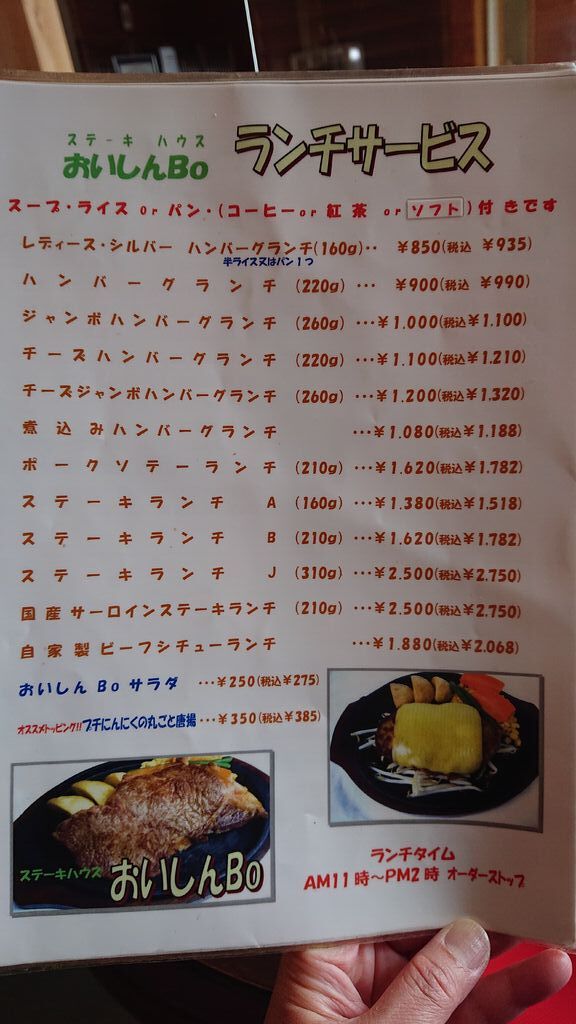 ステーキ ハウス
おいしんBo
ランチサービス
スープ・ライス or パン・(コーヒーor 紅茶 or ソフト)付きです
レディース・シルバー ハンバーグランチ(160g)‥ ¥850(税込 ¥935)
半ライス又はパン1つ
ハンバーグランチ (220g) … ¥900(税込 ¥990)
ジャンボハンバーグランチ (260g) …¥1.000(税込¥1.100)
チーズハンバーグランチ (220g) …¥1.100(税込¥1.210)
チーズジャンボハンバーグランチ (260g) …¥1.200(税込¥1,320)
煮込みハンバーグランチ …¥1.080(税込¥1.188)
ポークソテーランチ (210g) …¥1.620(税込¥1.782)
ステーキランチ A (160g) …¥1.380(税込¥1.518)
ステーキランチ B (210g) …¥1.620(税込¥1.782)
ステーキランチ J (310g) …¥2.500(税込¥2.750)
国産サーロインステーキランチ (210g) …¥2.500(税込¥2.750)
自家製ビーフシチューランチ …¥1.880(税込¥2.068)
おいしんBoサラダ …¥250(税込¥275)
オススメトッピング!!プチにんにくの丸ごと唐揚…¥350(税込¥385)
ステーキハウス おいしんBo
ランチタイム
AM11時～PM2時 オーダーストップ